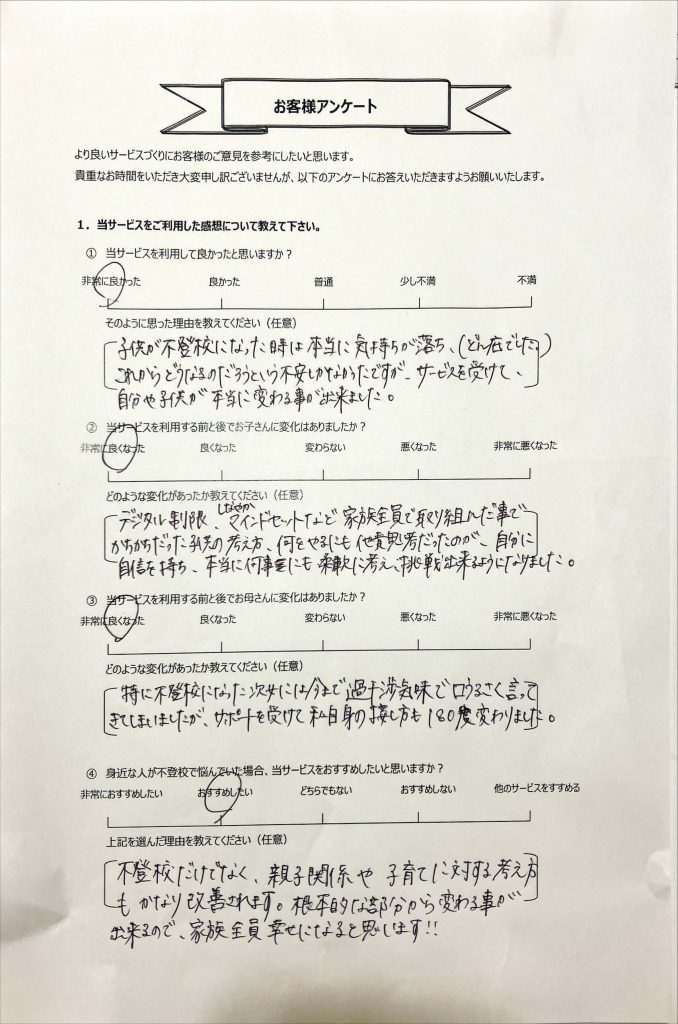 お客様アンケート
より良いサービスづくりにお客様のご意見を参考にしたいと思います。
貴重なお時間をいただき大変申し訳ございませんが、以下のアンケートにお答えいただきますようお願いいたします。
1．当サービスをご利用した感想について教えて下さい。
① 当サービスを利用して良かったと思いますか？
非常に良かった 良かった 普通 少し不満 不満
そのように思った理由を教えてください（任意）
子供が不登校になった時は本当に気持ちが落ち、(どん在でした。)
これからどうなるのだろうという不安しかなかったですが、サービスを受けて、
自分や子供が本当に変わる事が出来ました。
② 当サービスを利用する前と後でお子さんに変化はありましたか？
非常に良くなった 良くなった 変わらない 悪くなった 非常に悪くなった
どのような変化があったか教えてください（任意）
デジタル制限、しなやかマインドセットなど家族全員で取り組んだ事で
かちかちだった子供の考え方、何をやるにも他責思考だったのが、自分に
自信を持ち、本当に何事にも柔軟に考え、挑戦出来るようになりました。
③ 当サービスを利用する前と後でお母さんに変化はありましたか？
非常に良くなった 良くなった 変わらない 悪くなった 非常に悪くなった
どのような変化があったか教えてください（任意）
特に不登校になった次女には今まで過干渉気味で口うるさく言って
きてしまいましたが、サポートを受けて私自身の接し方も180度変わりました。
④ 身近な人が不登校で悩んでいた場合、当サービスをおすすめしたいと思いますか？
非常におすすめしたい おすすめしたい どちらでもない おすすめしない 他のサービスをすすめる
上記を選んだ理由を教えてください（任意）
不登校だけでなく、親子関係や子育てに対する考え方
もかなり改善されます。根本的な部分から変わる事が
出来るので、家族全員幸せになると思います!!